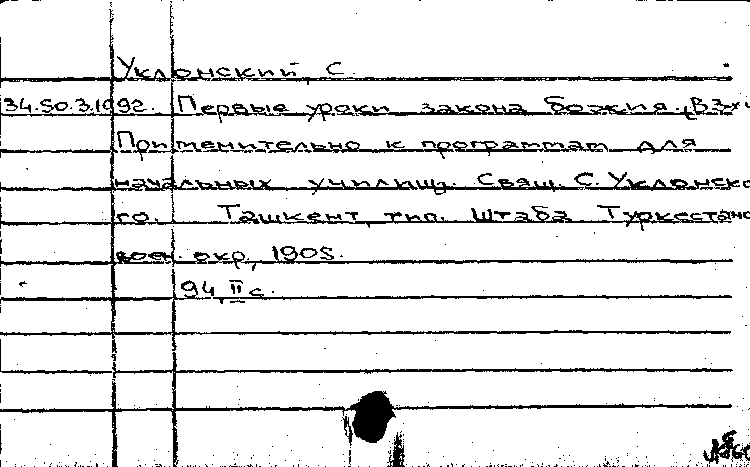 Уклонский, С.
34.50.3.1992. Первые уроки закона божия.
Применительно к программам для
начальных училищ. Свящ. С. Уклонско
го. Ташкент, тип. Штаба Туркестанс
воен. окр., 1905.
94, II с.